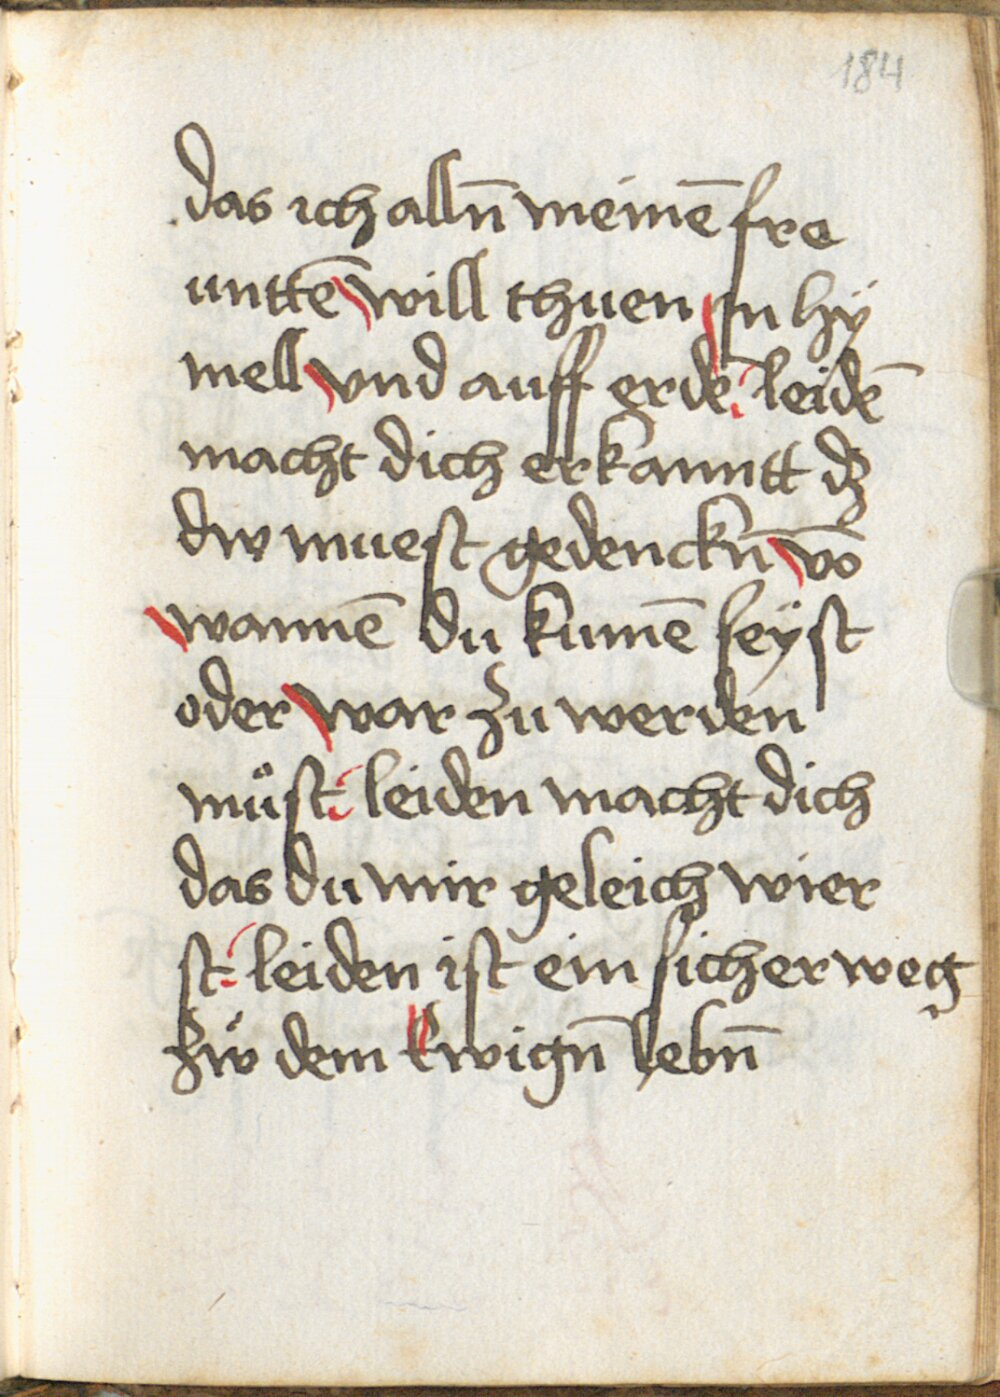 184
das ich alln̄ meinē fre
unttē will thuen In hÿ
mell vnd auff erdē: leidē
macht dich erkanntt dz
dw muest gedenckn̄ vō
wannē du kumē seÿst
oder war zu werden
můst: leiden macht dich
das du mir geleich wier
st: leiden ist ein sicher weg
zẘ dem Ewign̄ lebn̄